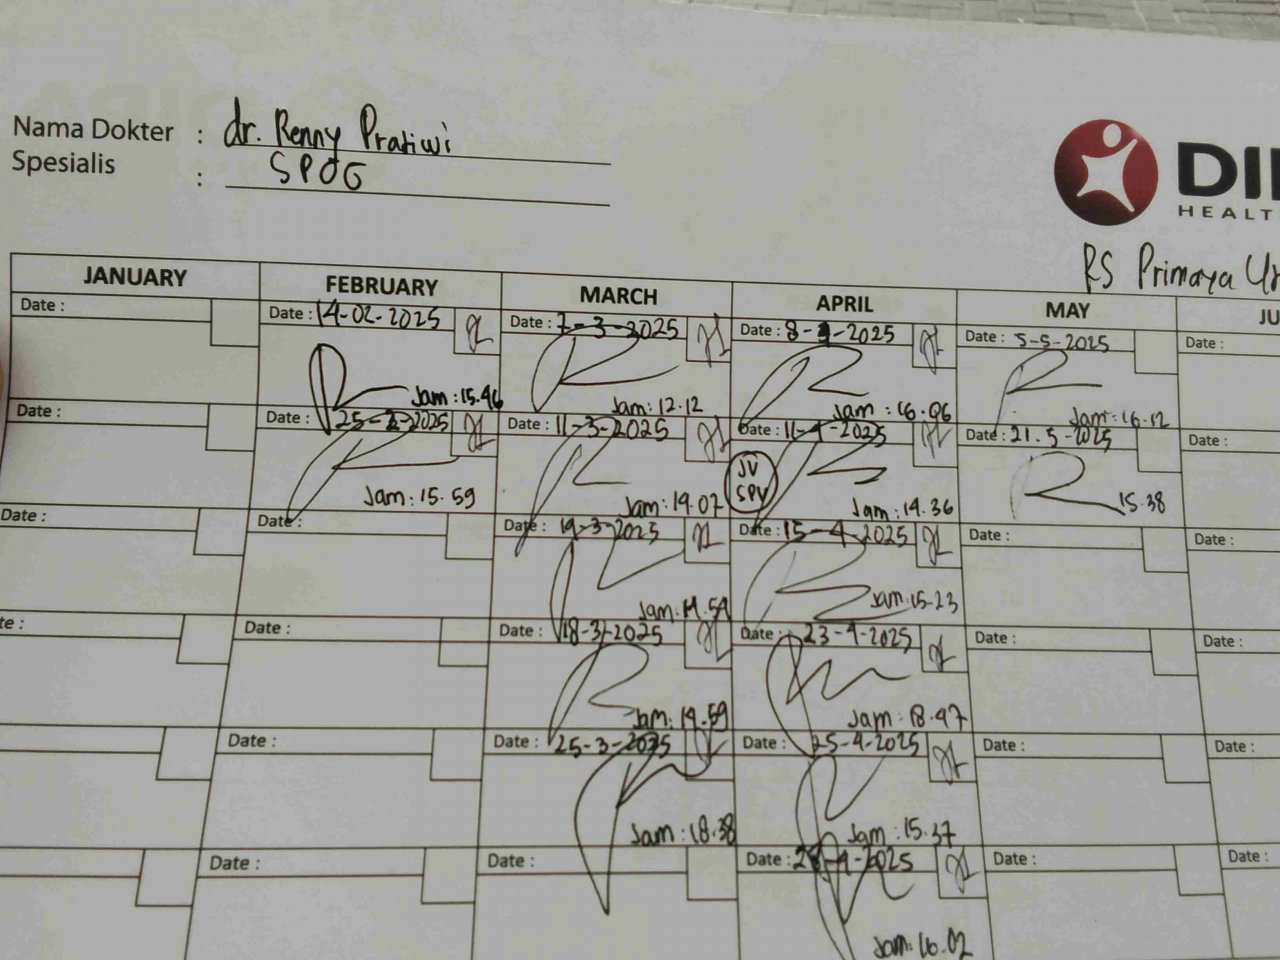 Nama Dokter : dr. Renny Pratiwi
Spesialis : SPOG
HEALT
RS Primaya
JANUARY FEBRUARY MARCH APRIL MAY JU
Date : Date : 14-02-2025 Date : 7-3-2025 Date : 8-4-2025 Date : 5-5-2025 Date :
Jam : 15.46 Jam : 12.12 Jam : 16.06 Jam : 16.12
Date : Date : 25-2-2025 Date : 11-3-2025 Date : 11-4-2025 Date : 21.5-2025 Date :
JV
SPV
Jam : 15.59 Jam : 14.07 Jam : 14.36 15.38
Date : Date : Date : 14-3-2025 Date : 15-4-2025 Date : Date :
Jam : 14.59 Jam : 15.23
Date : Date : 18-3-2025 Date : 23-4-2025 Date : Date :
Jam : 14.59 Jam : 18.47
Date : Date : 25-3-2025 Date : 25-4-2025 Date : Date :
Jam : 18.38 Jam : 15.37
Date : Date : Date : Date : Date :
Jam : 16.02